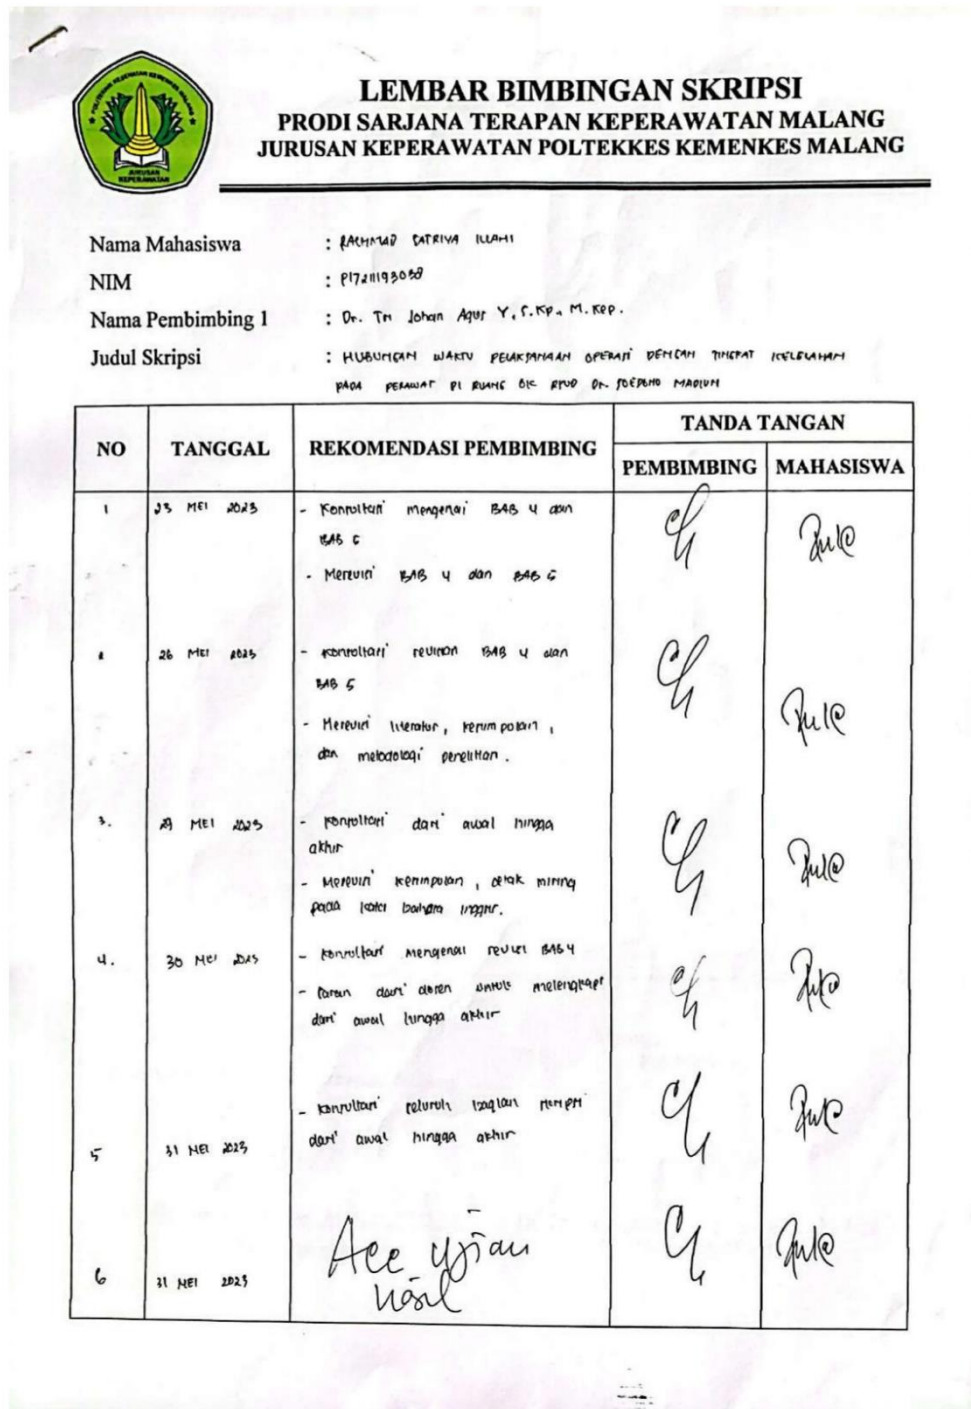 LEMBAR BIMBINGAN SKRIPSI
PRODI SARJANA TERAPAN KEPERAWATAN MALANG
JURUSAN KEPERAWATAN POLTEKKES KEMENKES MALANG
POLITEKNIK KESEHATAN KEMENKES MALANG
JURUSAN
KEPERAWATAN
Nama Mahasiswa : RACHMAD SATRIYA ILLAHI
NIM : P17211193038
Nama Pembimbing 1 : Dr. Tri Johan Agus Y, S.Kp., M.Kep.
Judul Skripsi : HUBUNGAN WAKTU PELAKSANAAN OPERASI DENGAN TINGKAT KELELAHAN
PADA PERAWAT DI RUANG OK RSUD DR. SOEDONO MADIUN
NO TANGGAL REKOMENDASI PEMBIMBING TANDA TANGAN
PEMBIMBING MAHASISWA
1 23 MEI 2023 - Konsultasi mengenai BAB 4 dan
BAB 5
- Merevisi BAB 4 dan BAB 5
2 26 MEI 2023 - Konsultasi revisian BAB 4 dan
BAB 5
- Merevisi literatur, kesimpulan,
dan metodologi penelitian.
3. 29 MEI 2023 - Konsultasi dari awal hingga
akhir
- Merevisi kesimpulan, cetak miring
pada kata bahasa inggris.
4. 30 MEI 2023 - Konsultasi mengenai revisi BAB 4
- Saran dari dosen untuk melengkapi
dari awal hingga akhir
- Konsultasi seluruh bagian skripsi
dari awal hingga akhir
5 31 MEI 2023
6 31 MEI 2023 Acc Ujian
hasil